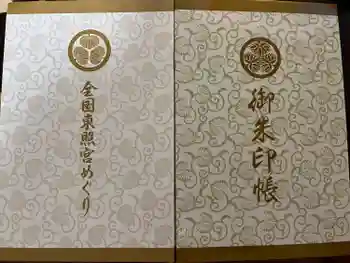 御朱印帳
全国東照宮めぐり